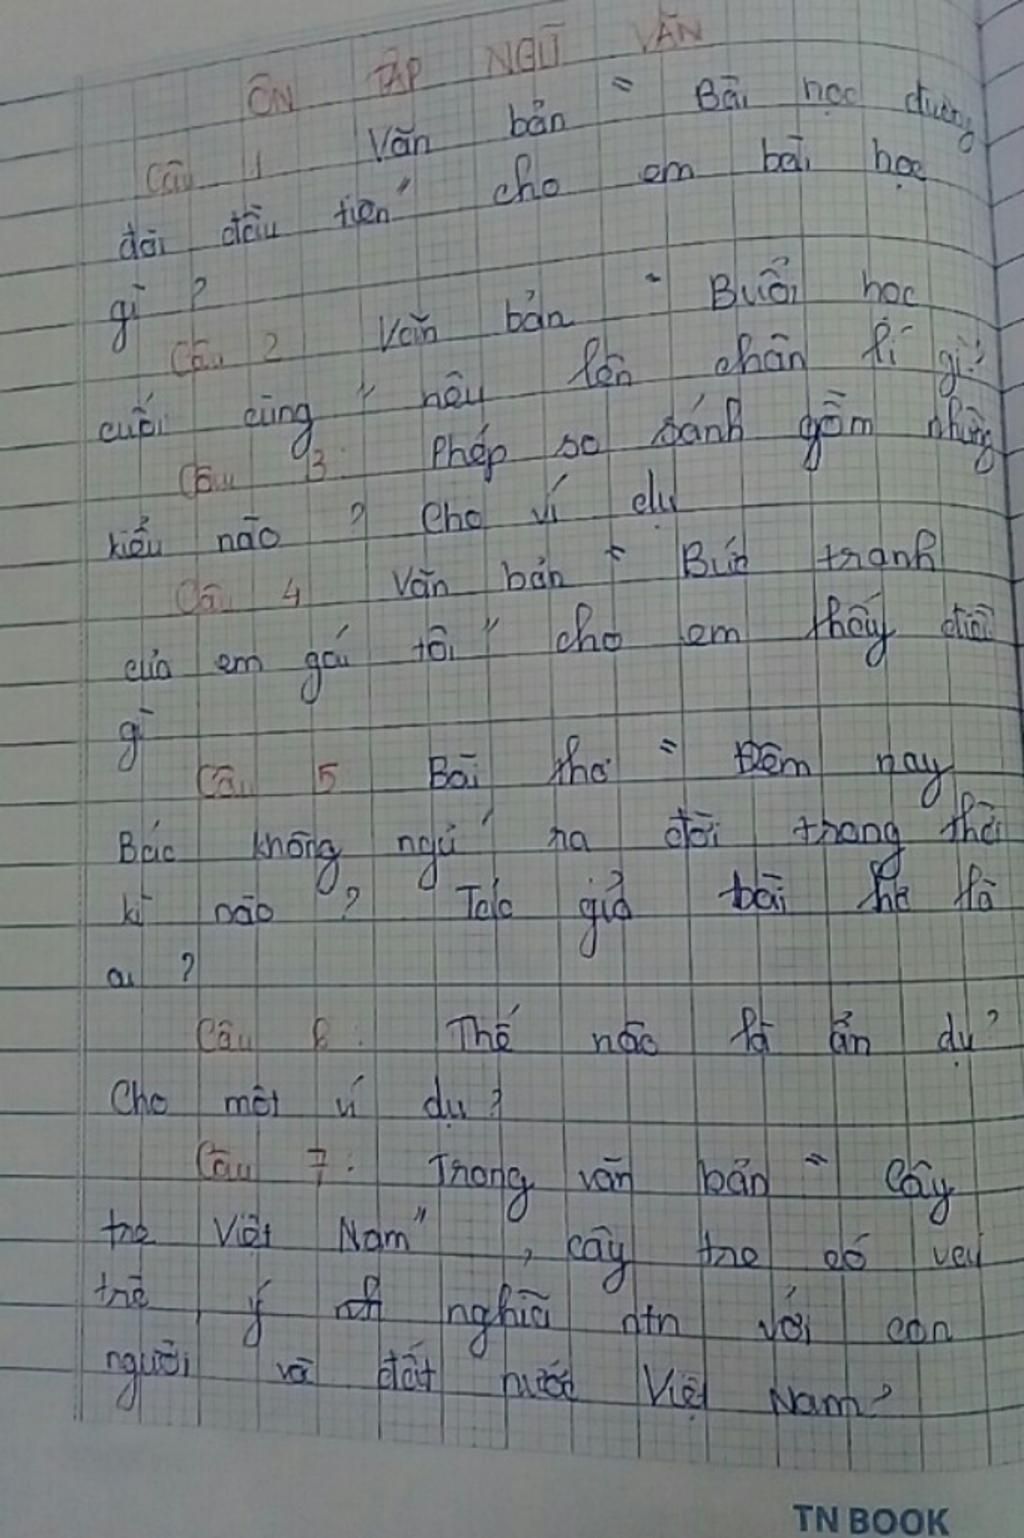 ÔN TẬP NGỮ VĂN
Câu 1 Văn bản " Bài học đường
đời đầu tiên" cho em bài học
gì ?
Câu 2 Văn bản " Buổi học
cuối cùng " nêu lên chân lí gì?
Câu 3: Phép so sánh gồm những
kiểu nào ? Cho ví dụ
Câu 4 Văn bản " Bức tranh
của em gái tôi " cho em thấy điều
gì
Câu 5 Bài thơ " Đêm nay
Bác không ngủ " ra đời trong thời
kì nào ? Tác giả bài thơ là
ai ?
Câu 6: Thế nào là ẩn dụ?
Cho một ví dụ?
Câu 7: Trong văn bản " Cây
tre Việt Nam" , cây tre có vai
trò, ý nghĩa ntn với con
người và đất nước Việt Nam?
TN BOOK